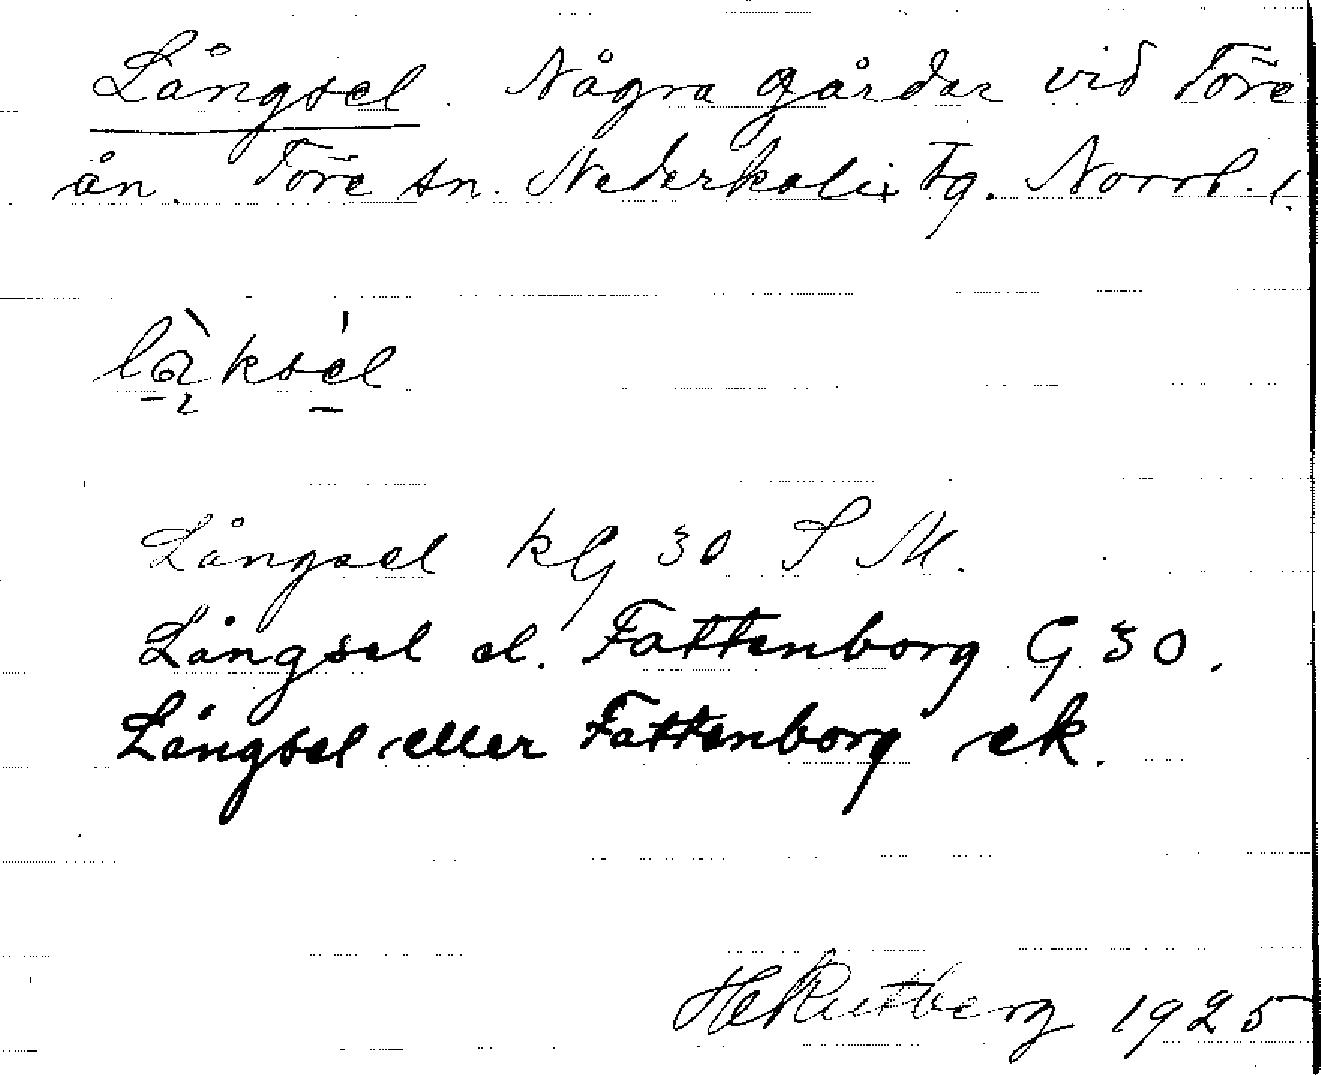 Långsel. Några gårdar vid Töre
ån. Töre sn. Nederkalix tg. Norrb. l.
làksél
Långsel klG 30 S M.
Långsel el. Fattenborg G 30.
Långsel eller Fattenborg ek.
HeRutberg 1925